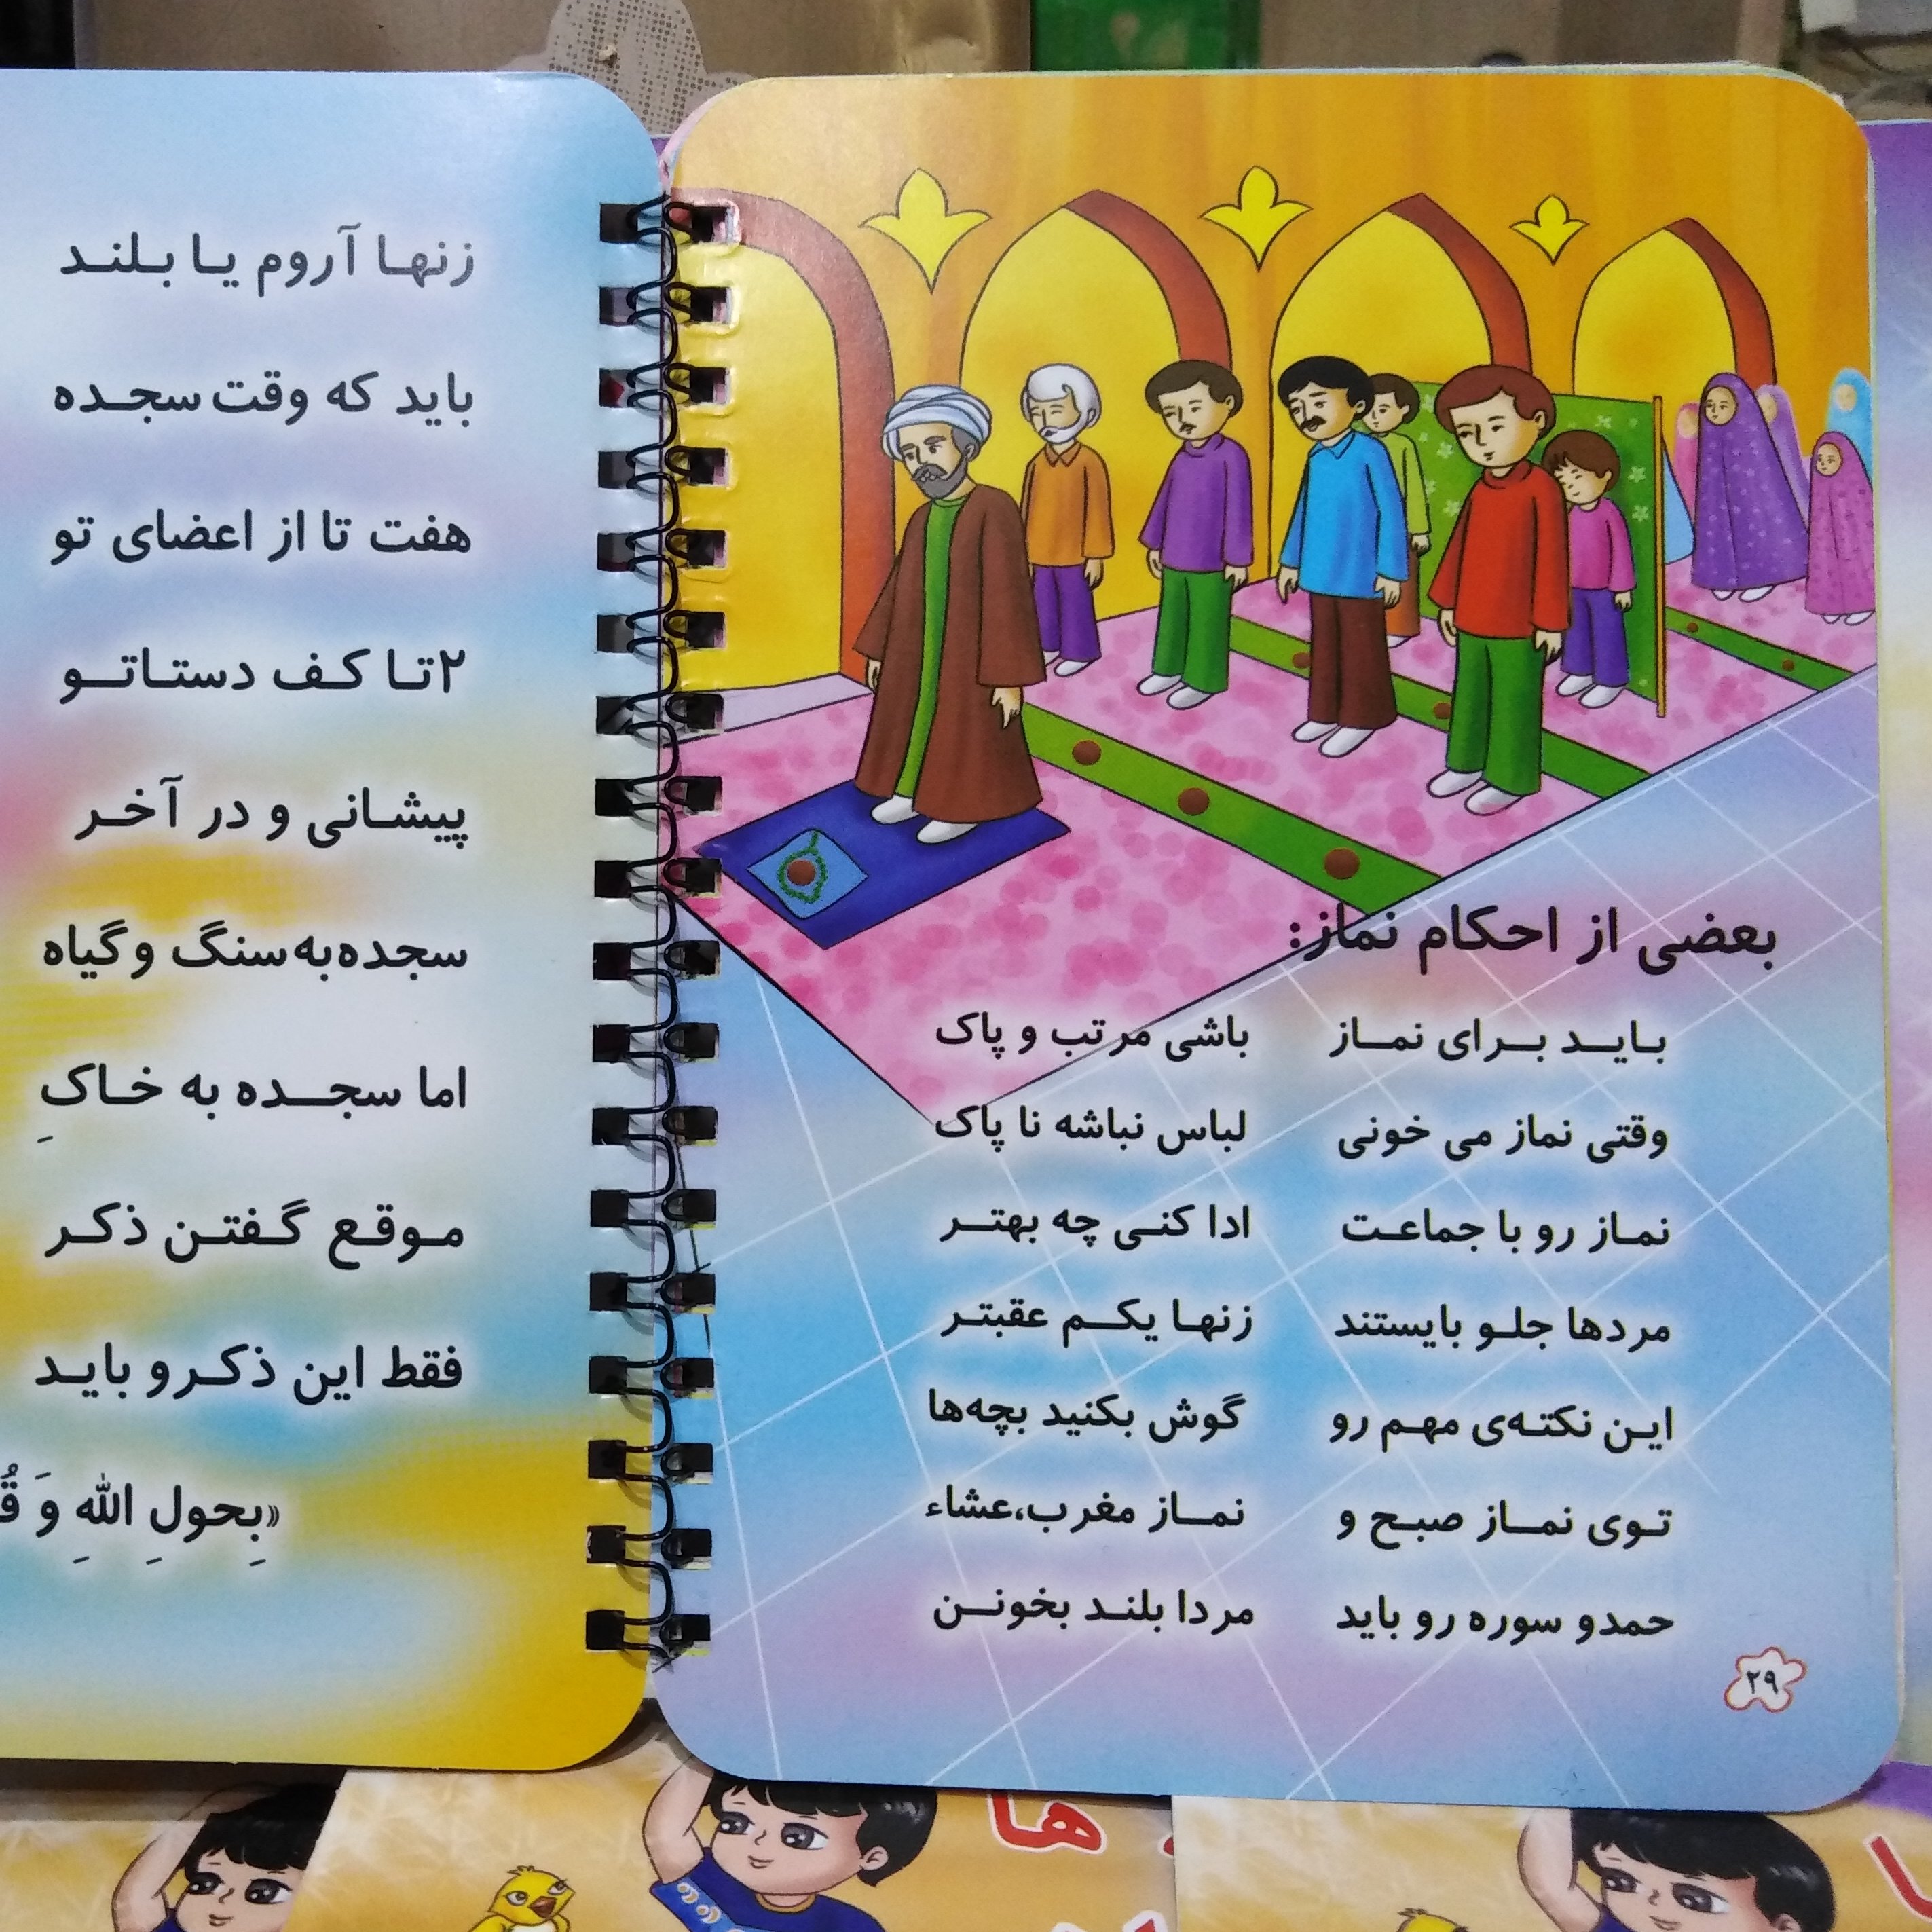 بعضی از احکام نماز:
بایـد بـرای نمـاز باشی مرتب و پاک
وقتی نماز می خونی لباس نباشه نا پاک
نماز رو با جماعت ادا کنی چه بهتر
مردها جلو بایستند زنها یکم عقبتر
این نکته‌ی مهم رو گوش بکنید بچه‌ها
توی نماز صبح و نماز مغرب،عشاء
حمدو سوره رو باید مردا بلند بخونن
۲۹
زنها آروم یا بلند
باید که وقت سجده
هفت تا از اعضای تو
۲تا کف دستاتو
پیشانی و در آخر
سجده‌به‌سنگ و گیاه
اما سجده به خاکِ
موقع گفتن ذکر
فقط این ذکرو باید
«بِحولِ اللهِ وَ
ها